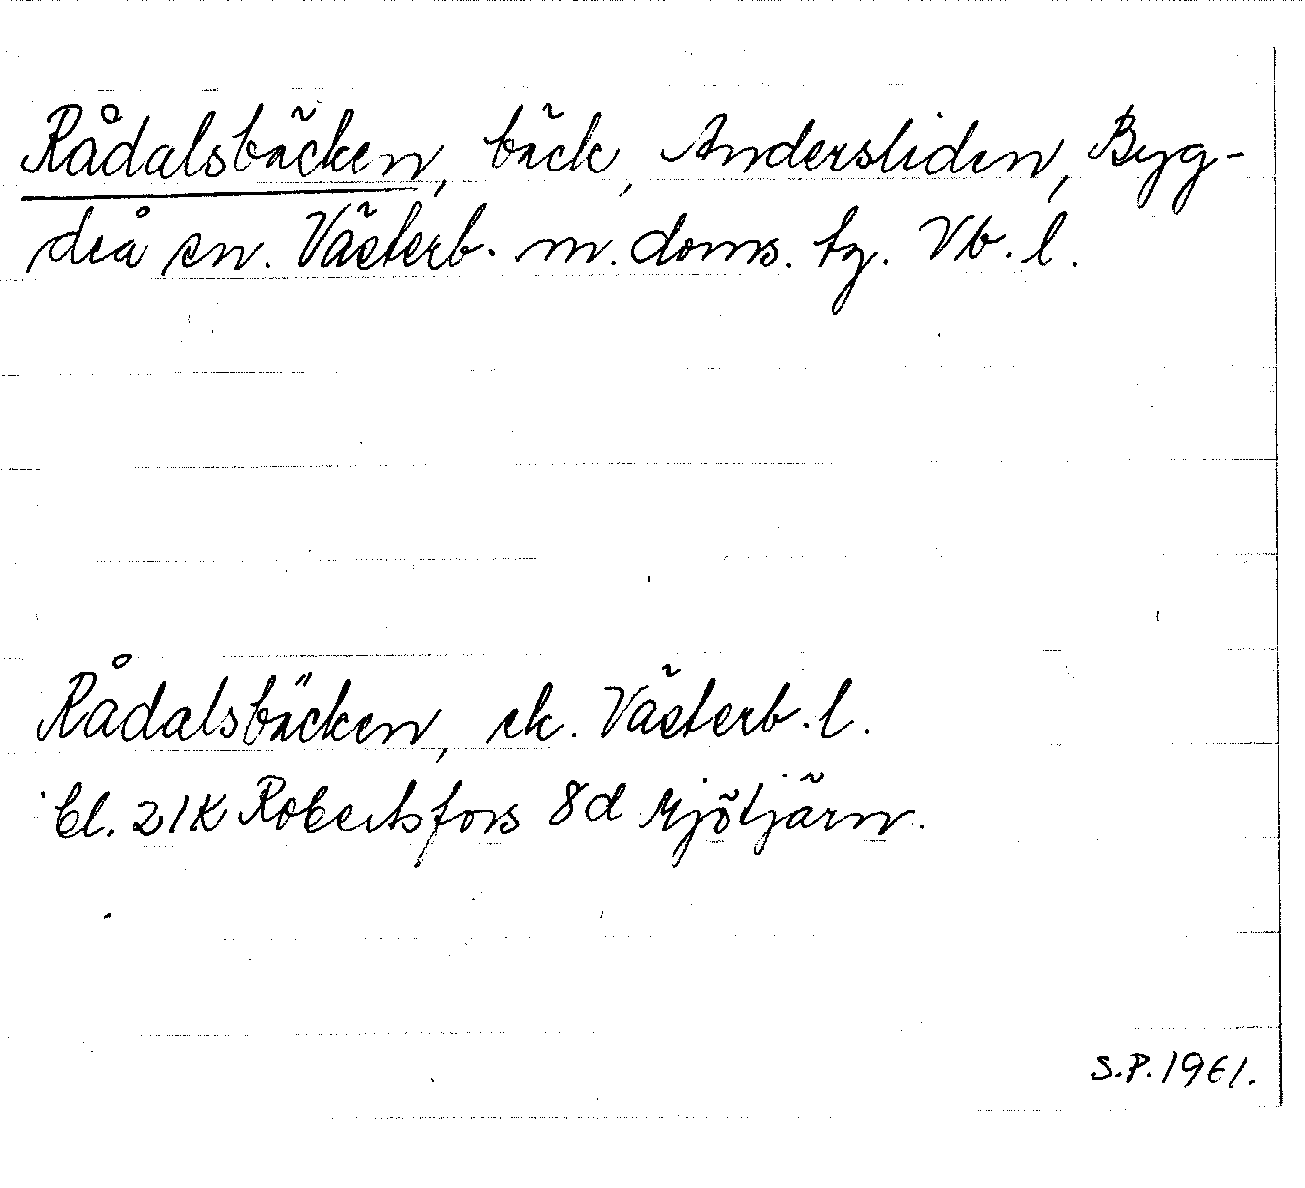 Rådalsbäcken, bäck, Andersliden, Byg-
deå sn. Västerb. m. doms. tg. Vb. l.
Rådalsbäcken, ek. Västerb. l.
bl. 21K Robertsfors 8d Mjötjärn.
S.P. 1961.